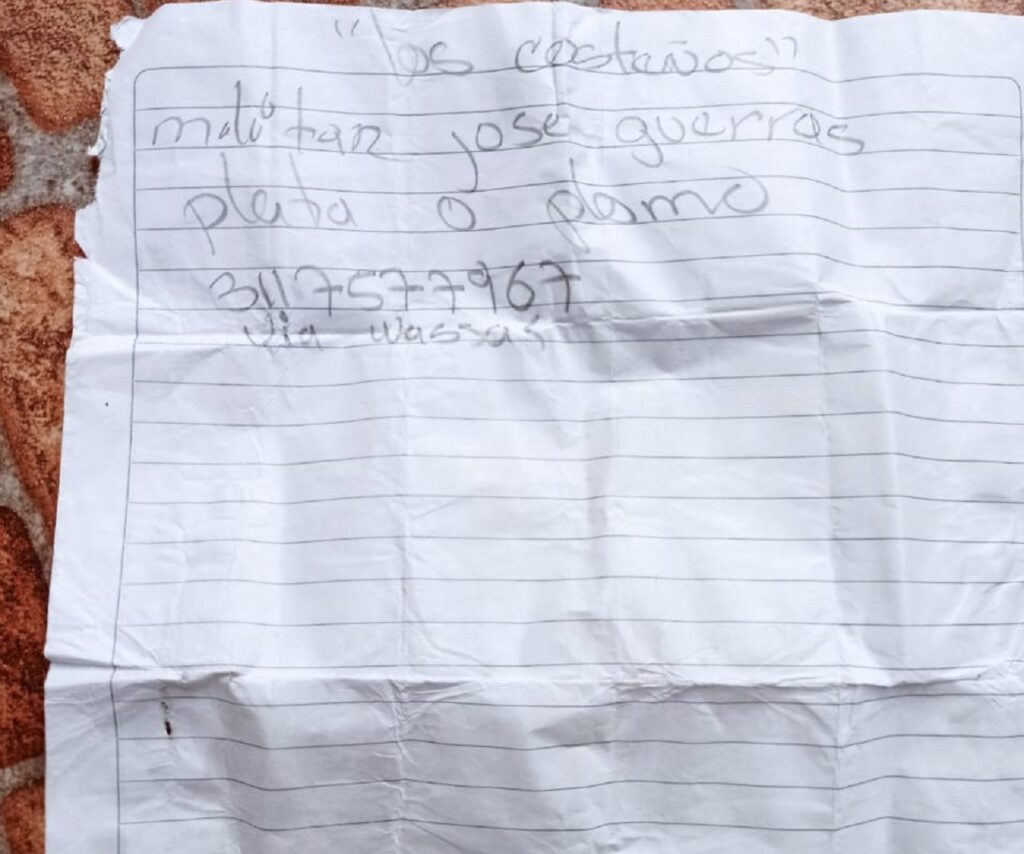 "los costeños"
militan jose guerras
plata o plomo
3117577967
via wassas